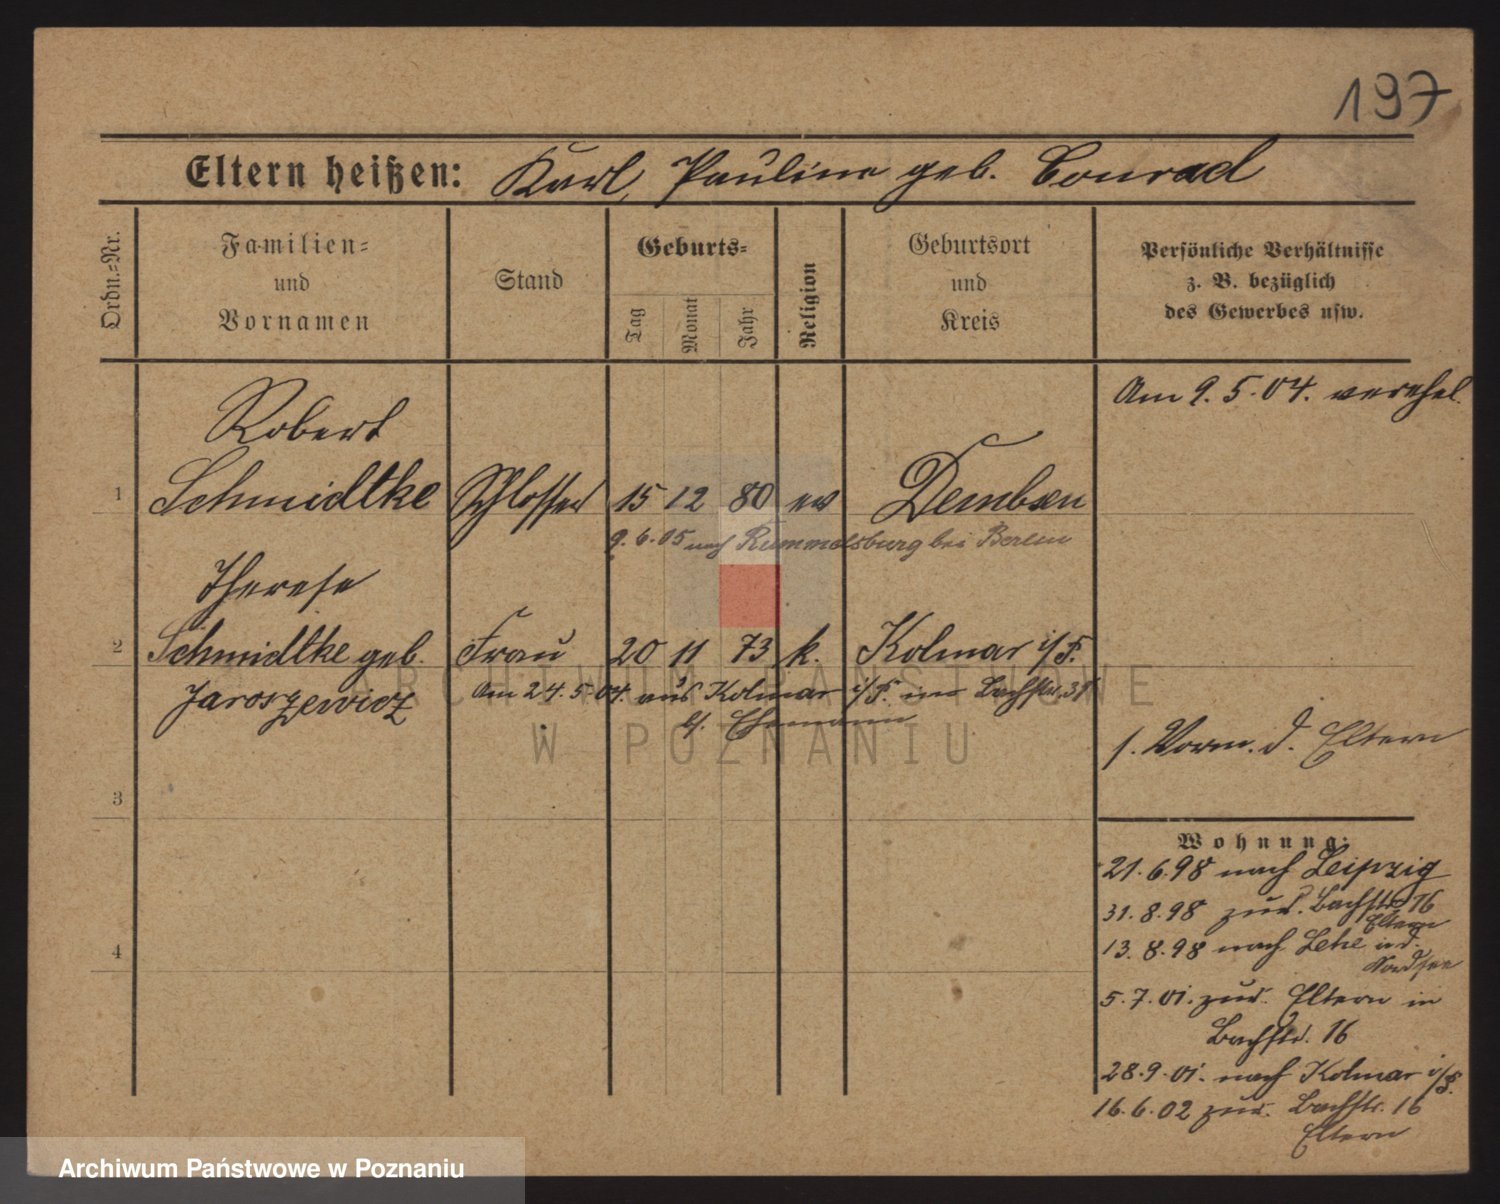 197
Eltern heißen: Karl, Pauline geb. Conrad
Ordn.-Nr.
Familien-
und
Vornamen
Stand
Geburts-
Tag
Monat
Jahr
Religion
Geburtsort
und
Kreis
Persönliche Verhältnisse
z. B. bezüglich
des Gewerbes usw.
Am 9.5.04. verehel.
Robert
1 Schmidtke Schlosser 15 12 80 ev Dembsen
9.6.05 nach Rummelsburg bei Berlin
Therese
2 Schmidtke geb. Frau 20 11 73 k. Kolmar i/P.
Jaroszewicz Am 24.5.04. aus Kolmar i/P. in Bachstr. 31
b/. Ehemann
f. Verm. d. Eltern
3
4
Wohnung:
21.6.98 nach Leipzig
31.8.98 zur. Bachstr. 16
Eltern
13.8.98 nach Lehe a. d.
Nordsee
5.7.01. zur. Eltern in
Bachstr. 16
28.9.01. nach Kolmar i/P.
16.6.02 zur. Bachstr. 16
Eltern
ARCHIWUM PAŃSTWOWE
W POZNANIU
Archiwum Państwowe w Poznaniu